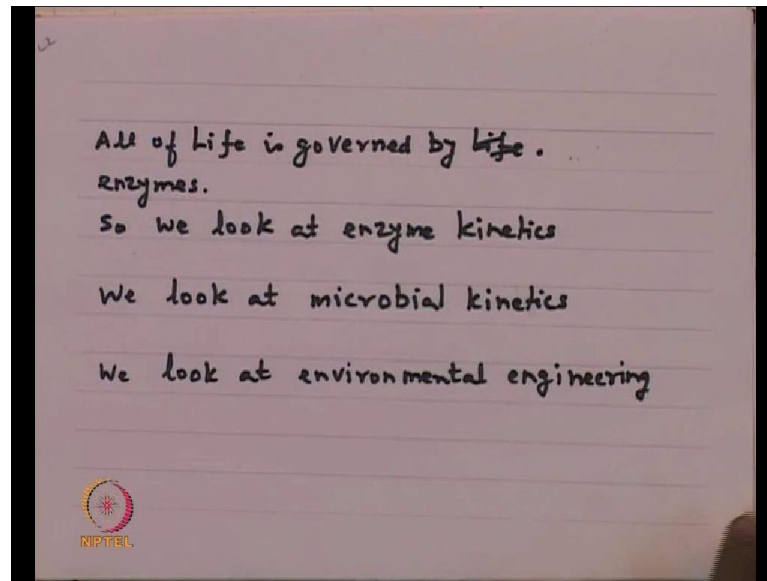 All of Life is governed by life.
enzymes.
So we look at enzyme kinetics
We look at microbial kinetics
We look at environmental engineering
NPTEL